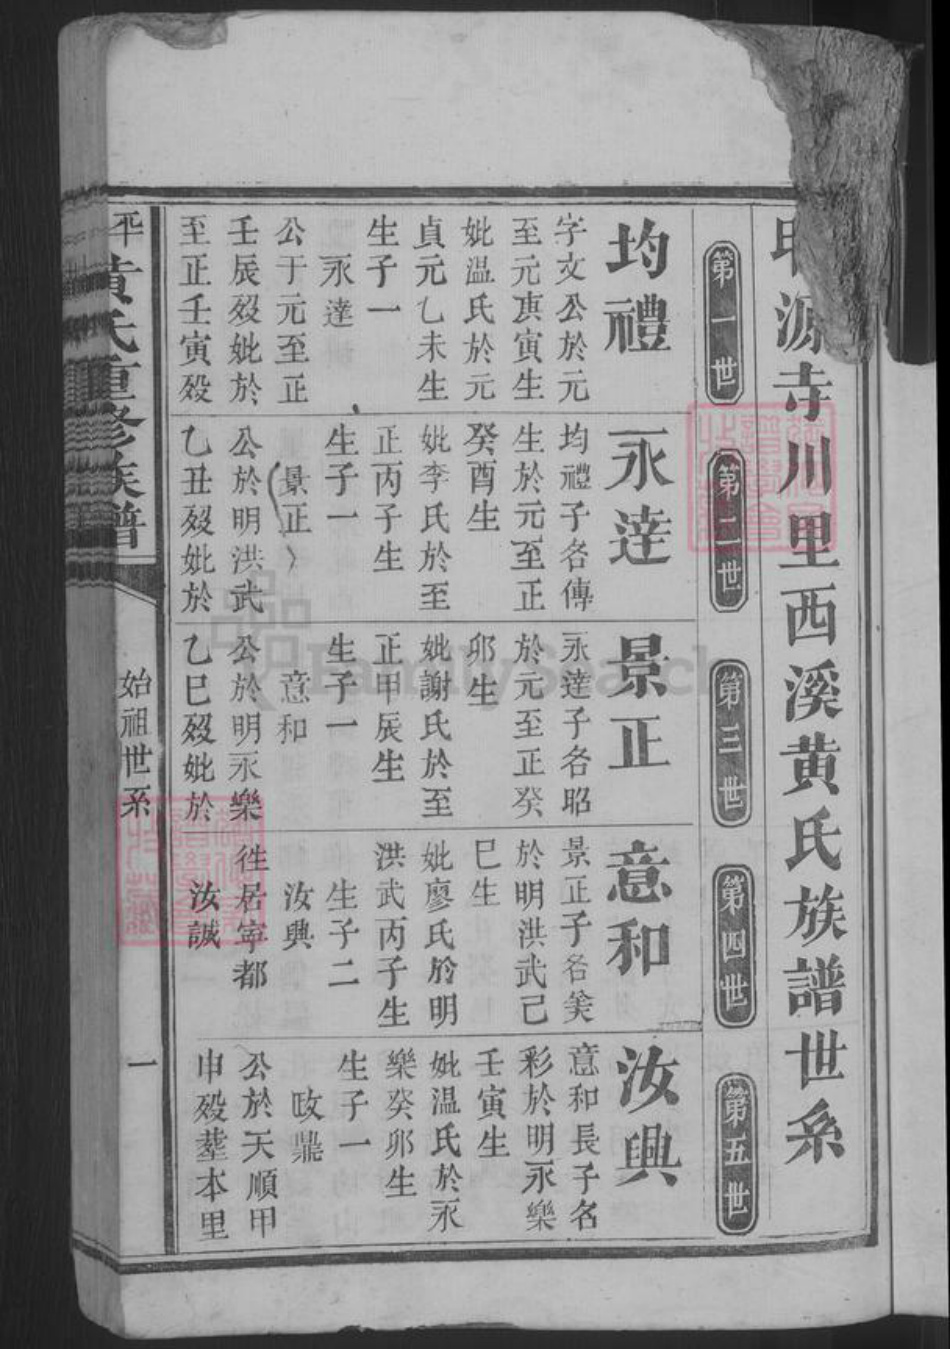 源寺川里西溪黄氏族譜世系
第一世
均禮
字文公於元
至元庚寅生
妣温氏於元
貞元乙未生
生子一
永達
公于元至正
壬辰歿妣於
至正壬寅歿
第二世
永達
均禮子名傳
生於元至正
癸酉生
妣李氏於至
正丙子生
生子一
景正
公於明洪武
乙丑歿妣於
第三世
景正
永達子名昭
於元至正癸
卯生
妣謝氏於至
正甲辰生
生子一
意和
公於明永樂
乙巳歿妣於
第四世
意和
景正子名美
於明洪武己
巳生
妣廖氏於明
洪武丙子生
生子二
汝興
徃居寜都
汝誠
第五世
汝興
意和長子名
彩於明永樂
壬寅生
妣温氏於永
樂癸卯生
生子一
政鼎
公於天順甲
申歿塟本里
平黄氏重修族譜
始祖世系
一
FamilySearch